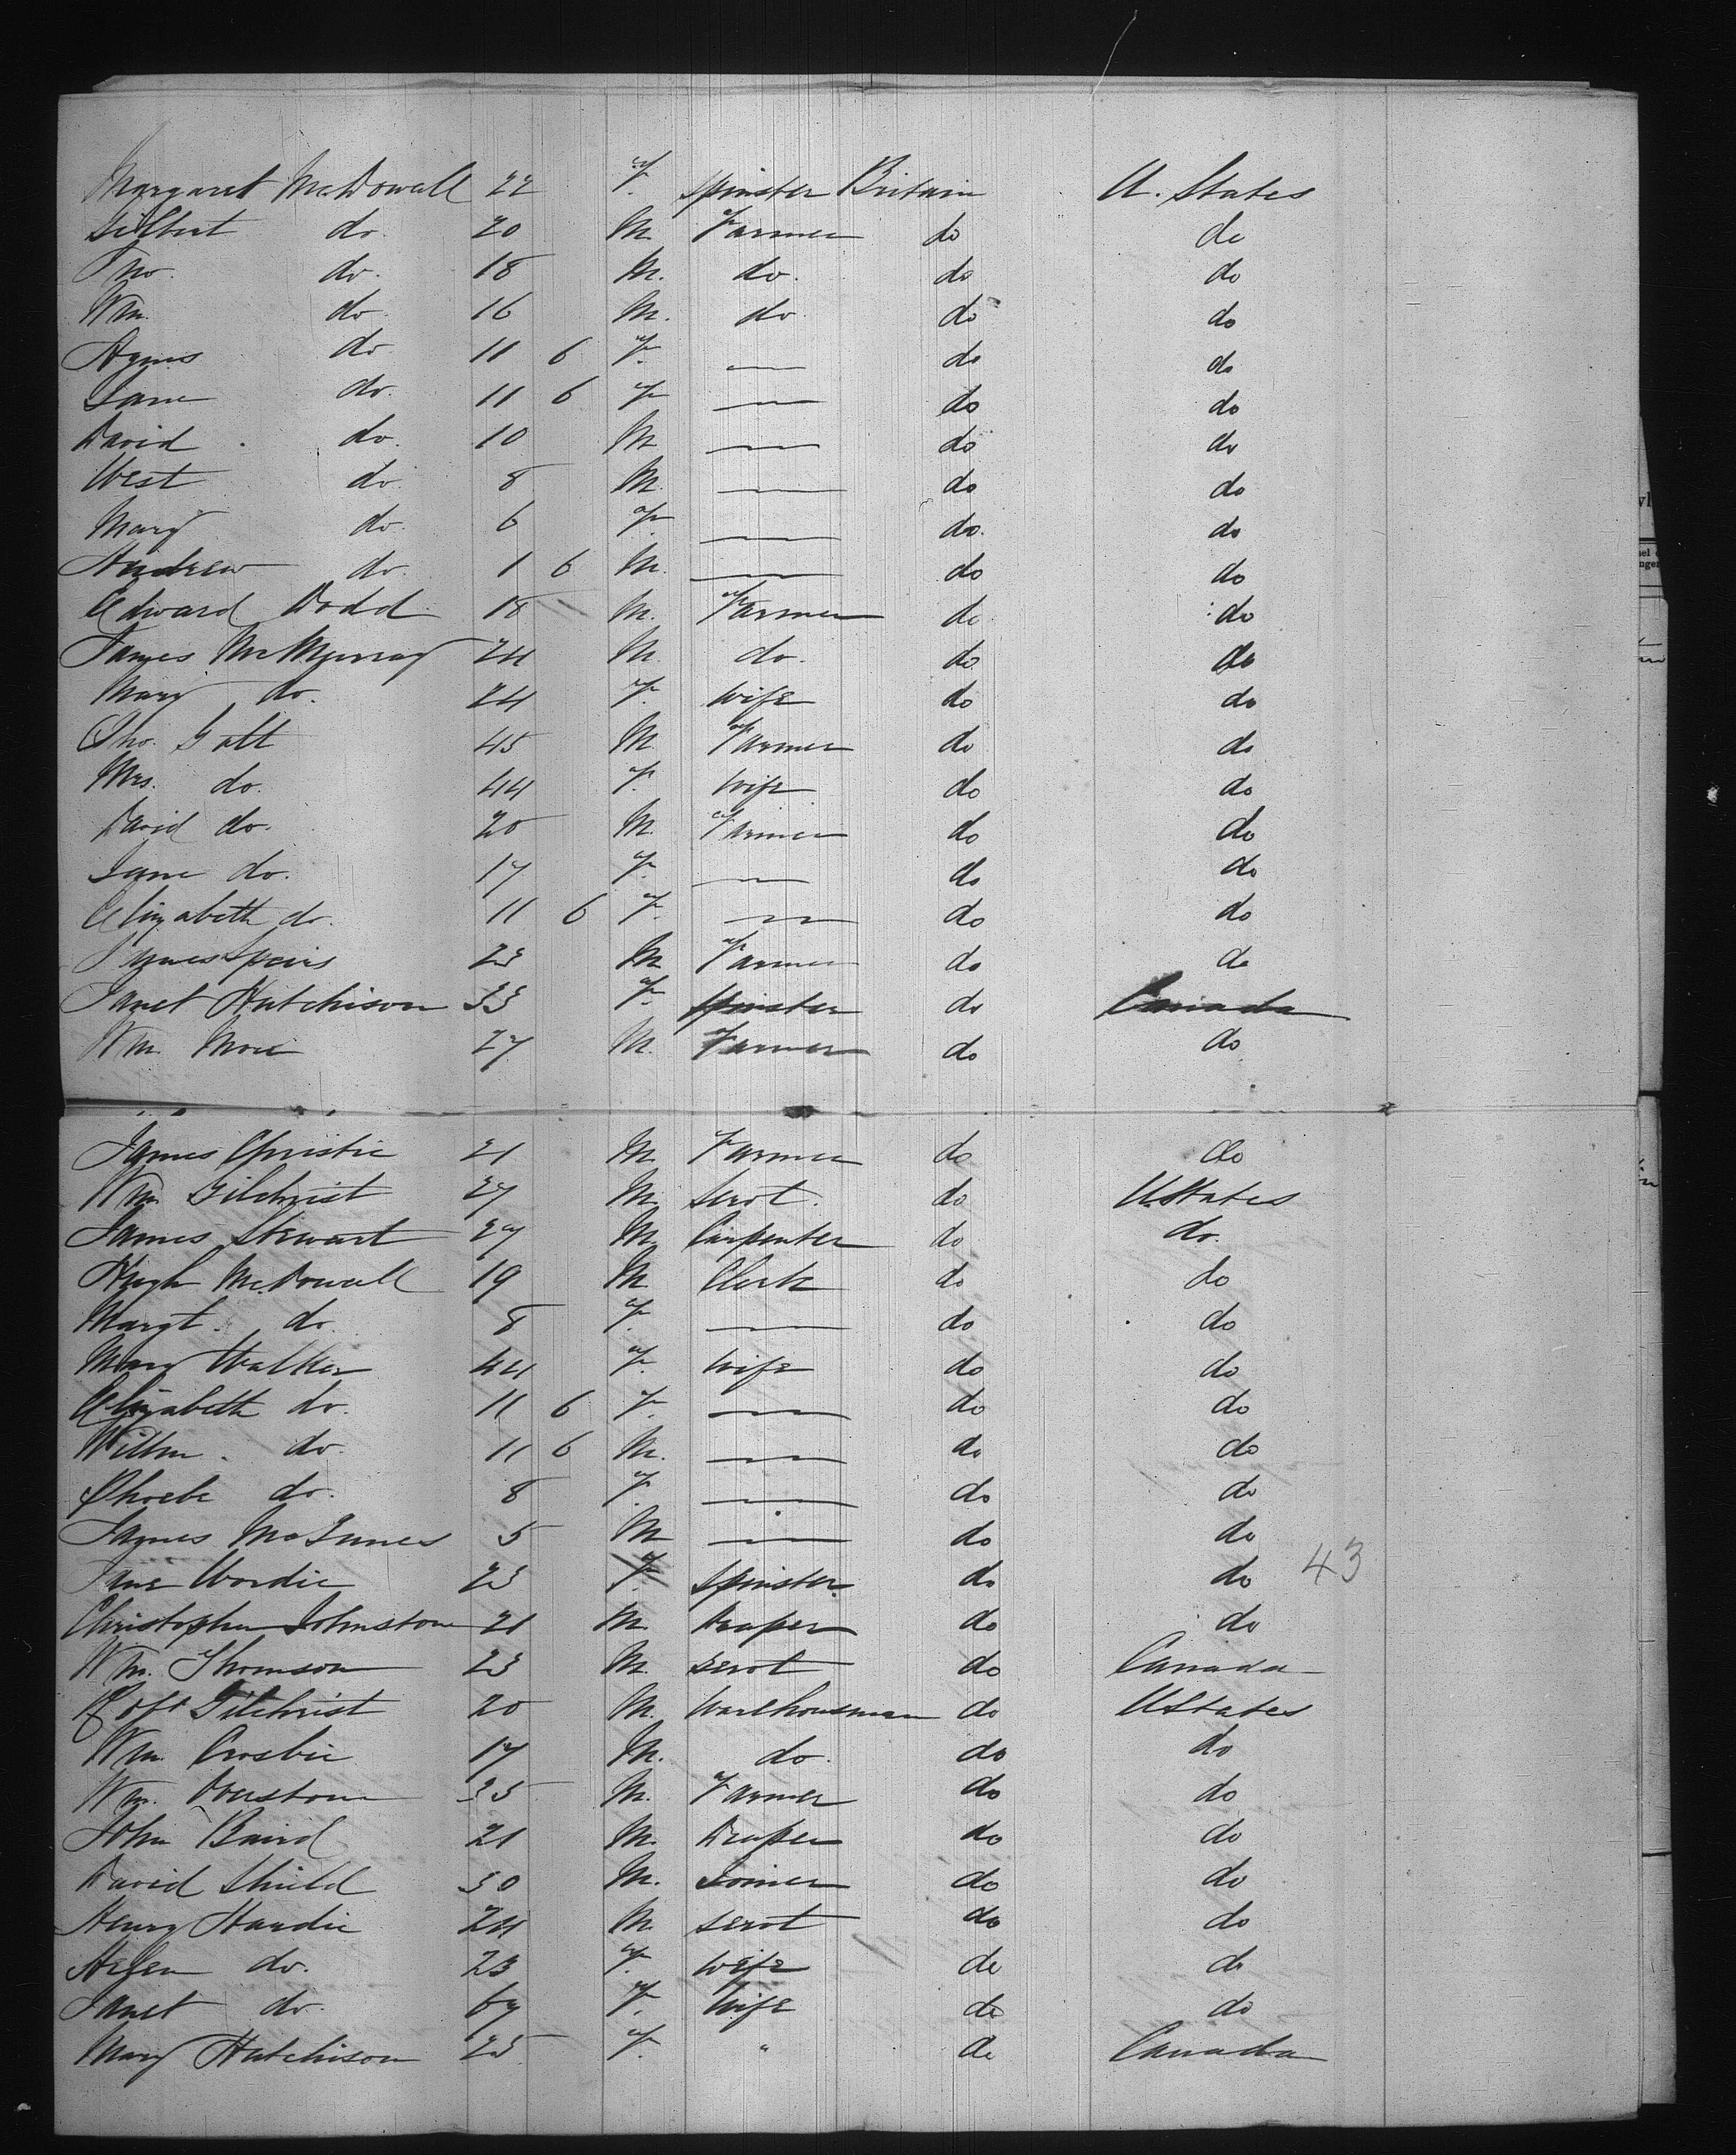 Margaret McDowall 22 F. Spinster Britain U. States
Gilbert do. 20 M Farmer do do
Jno. do. 18 M. do. do do
Wm. do. 16 M. do. do do
Agnes do. 11 6 F. — do do
Jane do. 11 6 F — do do
David do. 10 M — do do
West do. 8 M. — do do
Mary do. 6 F. — do. do
Andrew do. 1 6 M. — do do
Edward Dodd 18 M. Farmer do do
James McMurray 24 M. do. do do
Mary do. 24 F. Wife do do
Tho. Galt 45 M. Farmer do do
Mrs. do. 44 F. Wife do do
David do. 20 M. Farmer do do
Jane do. 17 F. — do do
Elizabeth do. 11 6 F. — do do
James Speirs 23 M Farmer do do
Janet Hutchison 33 F. Spinster do Canada
Wm. More 27 M. Farmer do do
James Christie 21 M. Farmer do do
Wm Gilchrist 27 M. Servt. do UStates
James Stewart 27 M. Carpenter do do.
Hugh McDowall 19 M. Clerk do do
Margt. do. 8 F. — do do
Mary Walker 44 F. Wife do do
Elizabeth do. 11 6 F. — do do
Willm. do. 11 6 M. — do do
Phoebe do. 8 F. — do do
James McInnes 5 M — do do
Jane Wordie 23 F. Spinster do do 43
Christopher Johnstone 21 M. Draper do do
Wm. Thomson 23 M. Servt do Canada
Robt Gilchrist 20 M. Warehousman do UStates
Wm. Crosbie 17 M. do. do do
Wm. 35 M. Farmer do do
John Baird 21 M. Draper do do
David Shield 30 M. Joiner do do
Henry Hardie 24 M. Servt do do
Helen do. 23 F. Wife do do
Janet do. 67 F. Wife do do
Mary Hutchison 25 F. " do Canada